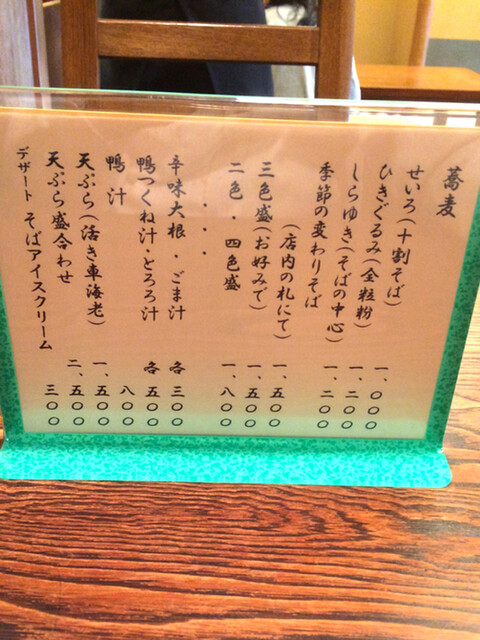 蕎麦
せいろ(十割そば) 一、〇〇〇
ひきぐるみ(全粒粉) 一、二〇〇
しらゆき(そばの中心) 一、二〇〇
季節の変わりそば
(店内の札にて) 一、五〇〇
三色盛(お好みで) 一、五〇〇
二色・四色盛 一、八〇〇
・・・
辛味大根・ごま汁 各三〇〇
鴨つくね汁・とろろ汁 各五〇〇
鴨汁 八〇〇
天ぷら(活き車海老) 一、五〇〇
天ぷら盛合わせ 二、五〇〇
デザート そばアイスクリーム 三〇〇